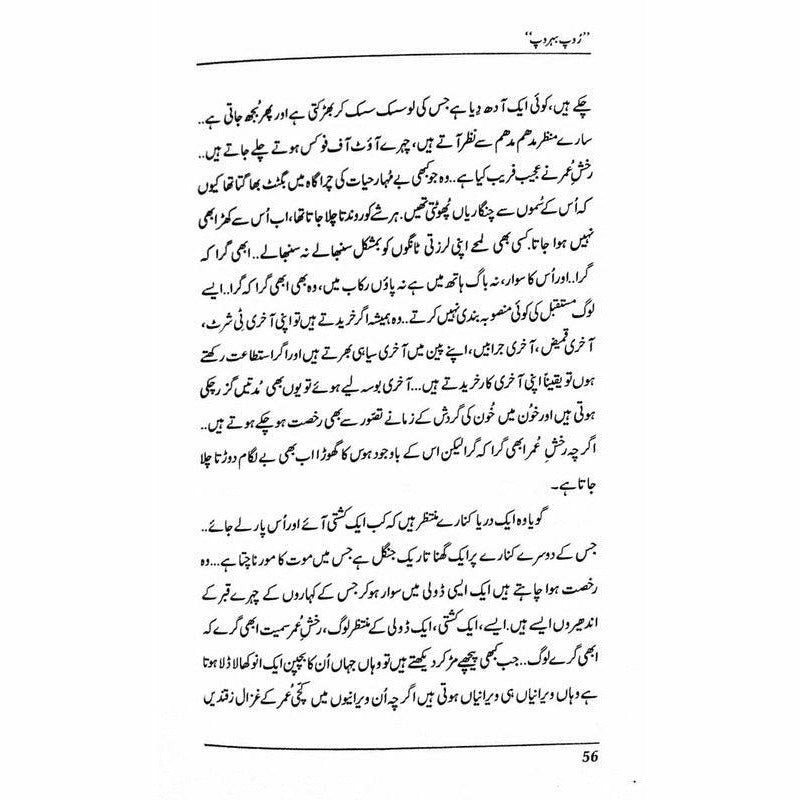 ”رُوپ بہروپ“
چکے ہیں، کوئی ایک آدھ دِیا ہے جس کی لو سسک سسک کر بھڑکتی ہے اور پھر بُجھ جاتی ہے..
سارے منظر مدھم مدھم سے نظر آتے ہیں، چہرے آؤٹ آف فوکس ہوتے چلے جاتے ہیں..
رخشِ عُمر نے عجیب فریب کیا ہے.. وہ جو کبھی بے مُہار حیات کی چراگاہ میں بگٹٹ بھاگتا تھا کیوں
کہ اُس کے سُموں سے چنگاریاں پُھوٹتی تھیں. ہر شے کو روندتا چلا جاتا تھا، اب اُس سے کھڑا بھی
نہیں ہوا جاتا. کسی بھی لمحے اپنی لرزتی ٹانگوں کو بمشکل سنبھالے نہ سنبھالے.. ابھی گرا کہ
گرا.. اور اُس کا سوار، نہ باگ ہاتھ میں ہے نہ پاؤں رکاب میں، وہ بھی ابھی گرا کہ گرا.. ایسے
لوگ مستقبل کی کوئی منصوبہ بندی نہیں کرتے.. وہ ہمیشہ اگر خریدتے ہیں تو اپنی آخری ٹی شرٹ،
آخری قمیض، آخری جرابیں، اپنے پین میں آخری سیاہی بھرتے ہیں اور اگر استطاعت رکھتے
ہوں تو یقیناً اپنی آخری کار خریدتے ہیں... آخری بوسہ لیے ہوئے تو یوں بھی مُدتیں گزر چکی
ہوتی ہیں اور خُون میں خُون کی گردش کے زمانے تصّور سے بھی رخصت ہو چکے ہوتے ہیں..
اگرچہ رخشِ عُمر ابھی گرا کہ گرا لیکن اس کے باوجود ہوس کا گھوڑا اب بھی بے لگام دوڑتا چلا
جاتا ہے۔
گویا وہ ایک دریا کنارے منتظر ہیں کہ کب ایک کشتی آئے اور اُس پار لے جائے..
جس کے دوسرے کنارے پر ایک گھنا تاریک جنگل ہے جس میں موت کا مور ناچتا ہے... وہ
رخصت ہوا چاہتے ہیں ایک ایسی ڈولی میں سوار ہو کر جس کے کہاروں کے چہرے قبر کے
اندھیروں ایسے ہیں. ایسے، ایک کشتی، ایک ڈولی کے منتظر لوگ، رخشِ عُمر سمیت ابھی گرے کہ
ابھی گرے لوگ.. جب کبھی پیچھے مڑ کر دیکھتے ہیں تو وہاں جہاں اُن کا بچپن ایک انوکھا لاڈلا ہوتا
ہے وہاں ویرانیاں ہی ویرانیاں ہوتی ہیں اگرچہ اُن ویرانیوں میں کچّی عُمر کے غزال زقندیں
56